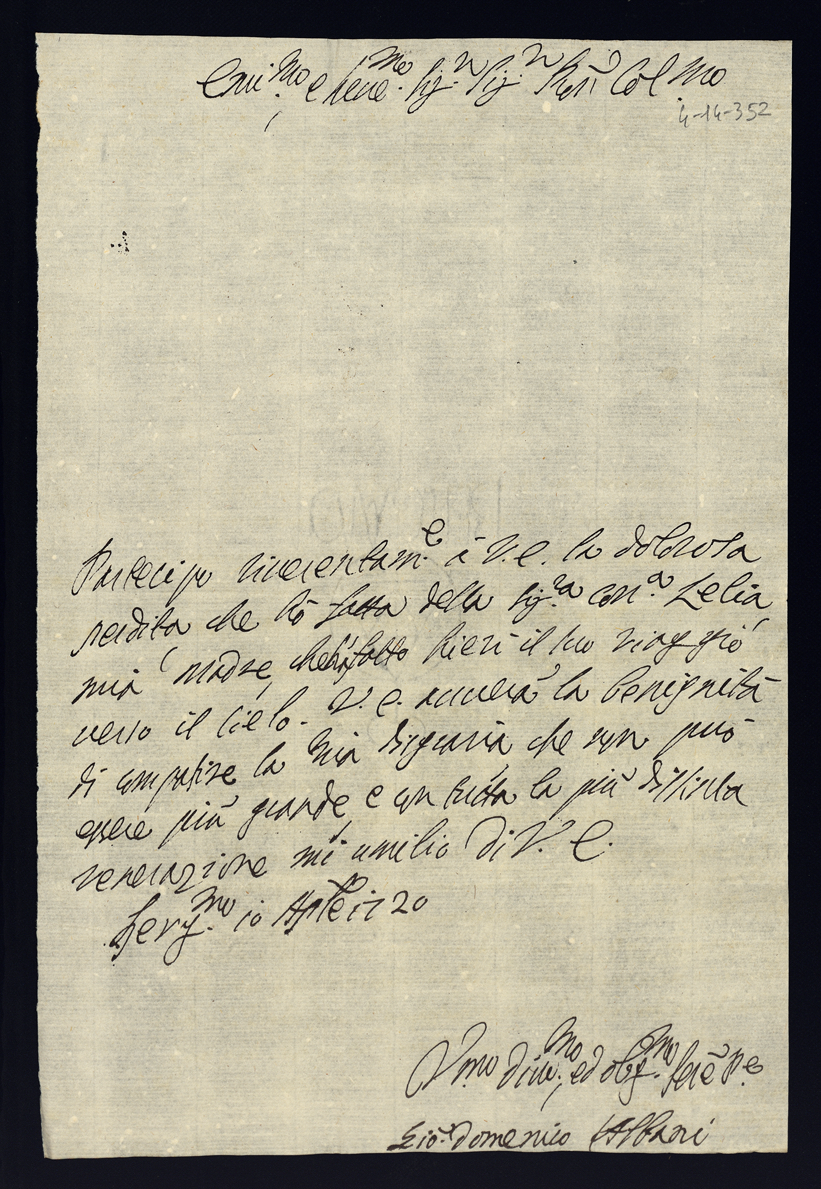 Em.mo e Rev.mo Sig.r Sig.r P̃ron Col.mo
4-14-352
Partecipo riverentam.e à V. E. la dolorosa
perdita che hò fatta della Sig.ra Con.a Lelia
mia Madre, che hà fatto hieri il suo viaggio
verso il Cielo. V. E. haverà la benignità
di compatire la mia disgrazia che non può
essere più grande, e con tutta la più distinta
venerazione mi umilio Di V. E.
Berg.mo 10 Aple 1720
Vmo Divo.mo, ed obg.mo Serẽ P.e
Gio: Domenico Albani